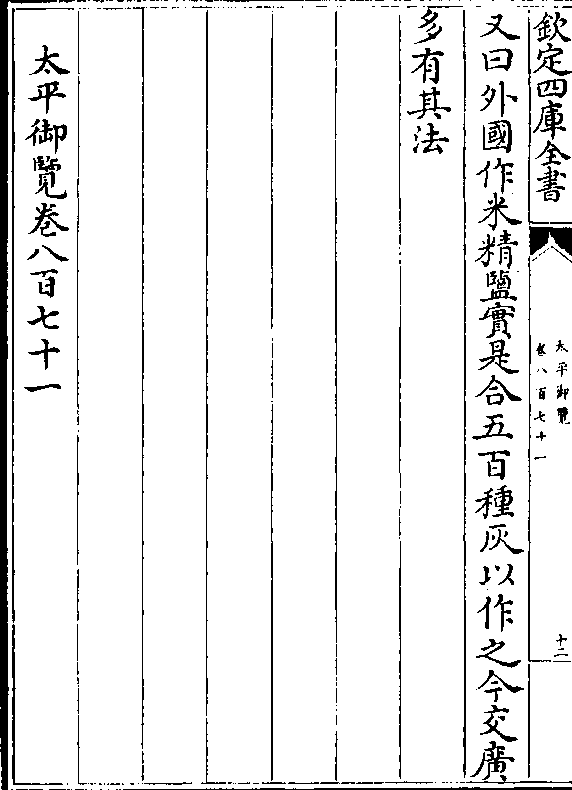 欽定四庫全書
太平御覽
卷八百七十一
十二
又曰外國作米精鹽實是合五百種灰以作之今交廣
多有其法
太平御覽卷八百七十一